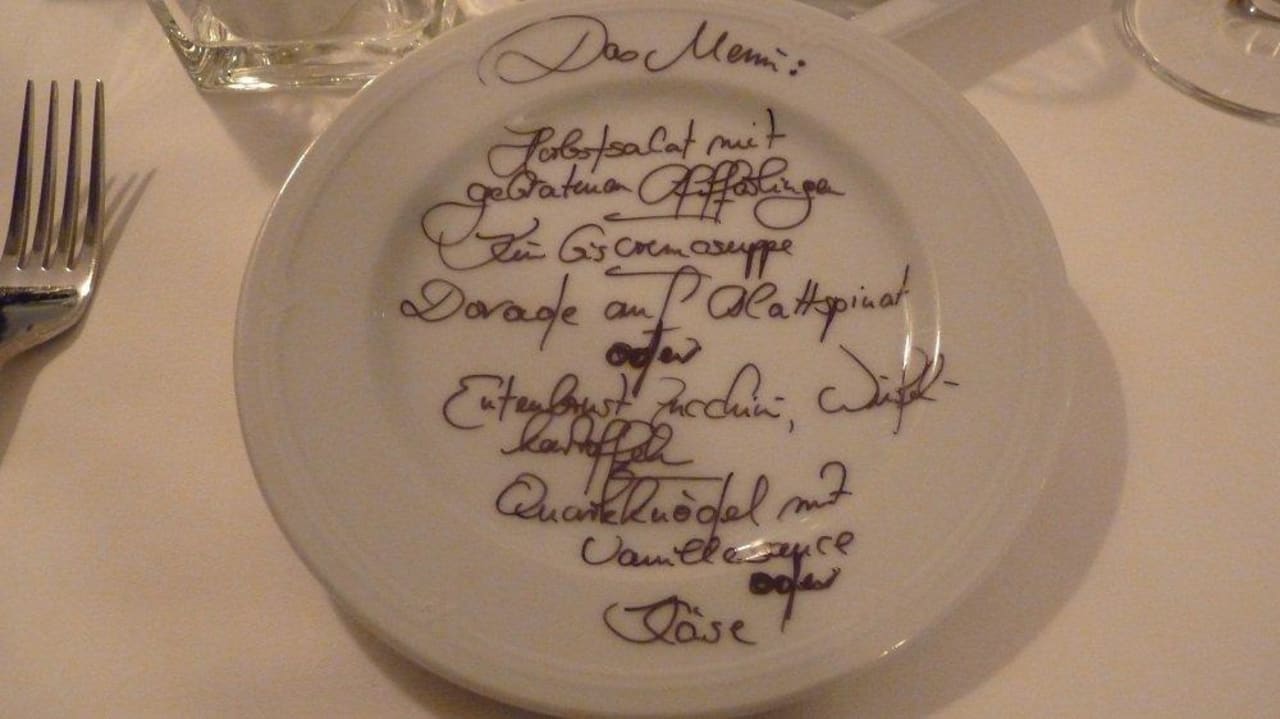 Das Menü:
Herbstsalat mit
gebratenen Pfifferlingen
Kürbiscremesuppe
Dorade auf Blattspinat
oder
Entenbrust Zucchini, Würfel-
kartoffeln
Quarkknödel mit
Vanillesauce
oder
Käse